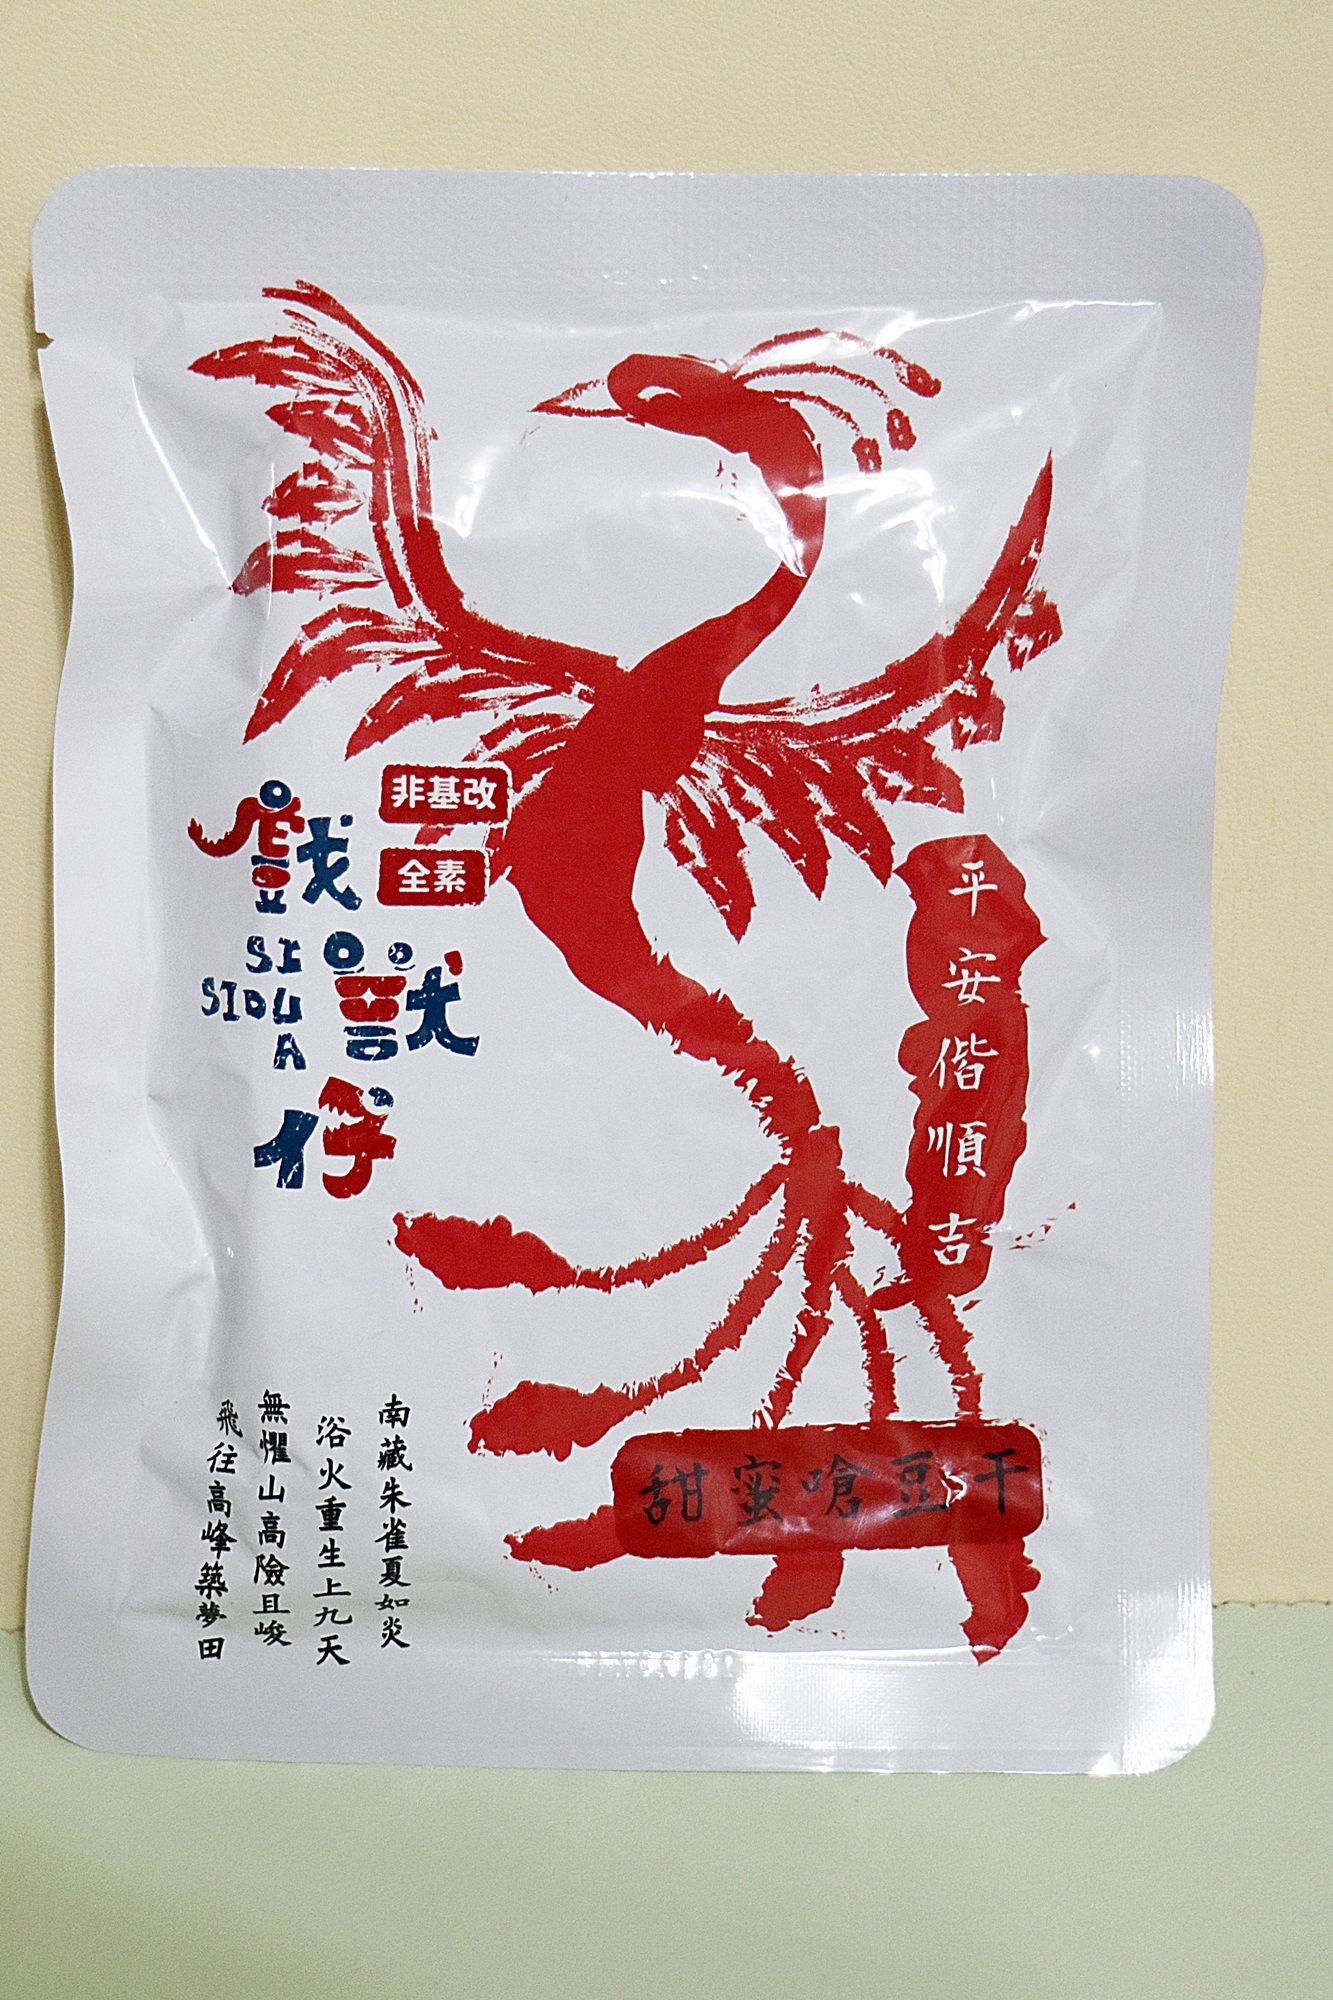 非基改
全素
戲獸仔
SI
SIOU
A
平安偕順吉
南藏朱雀夏如炎
浴火重生上九天
無懼山高險且峻
飛往高峰築夢田
甜蜜嗆豆干